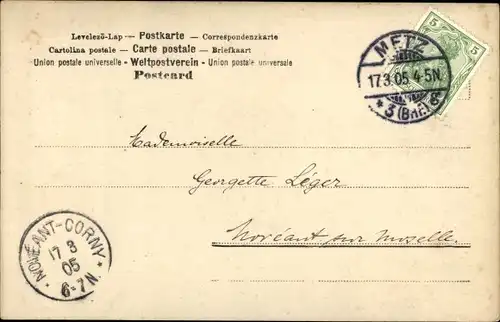 Levelező-Lap — Postkarte — Correspondenzkarte
Cartolina postale — Carte postale — Briefkaart
Union postale universelle - Weltpostverein - Union postale universale
Postcard
5 5
METZ
17.3.05. 4-5N.
* 3 (Bhf.)
Mademoiselle
Georgette Léger
Novéant sur Moselle.
NOVÉANT-CORNY
17 3
05
6-7N.